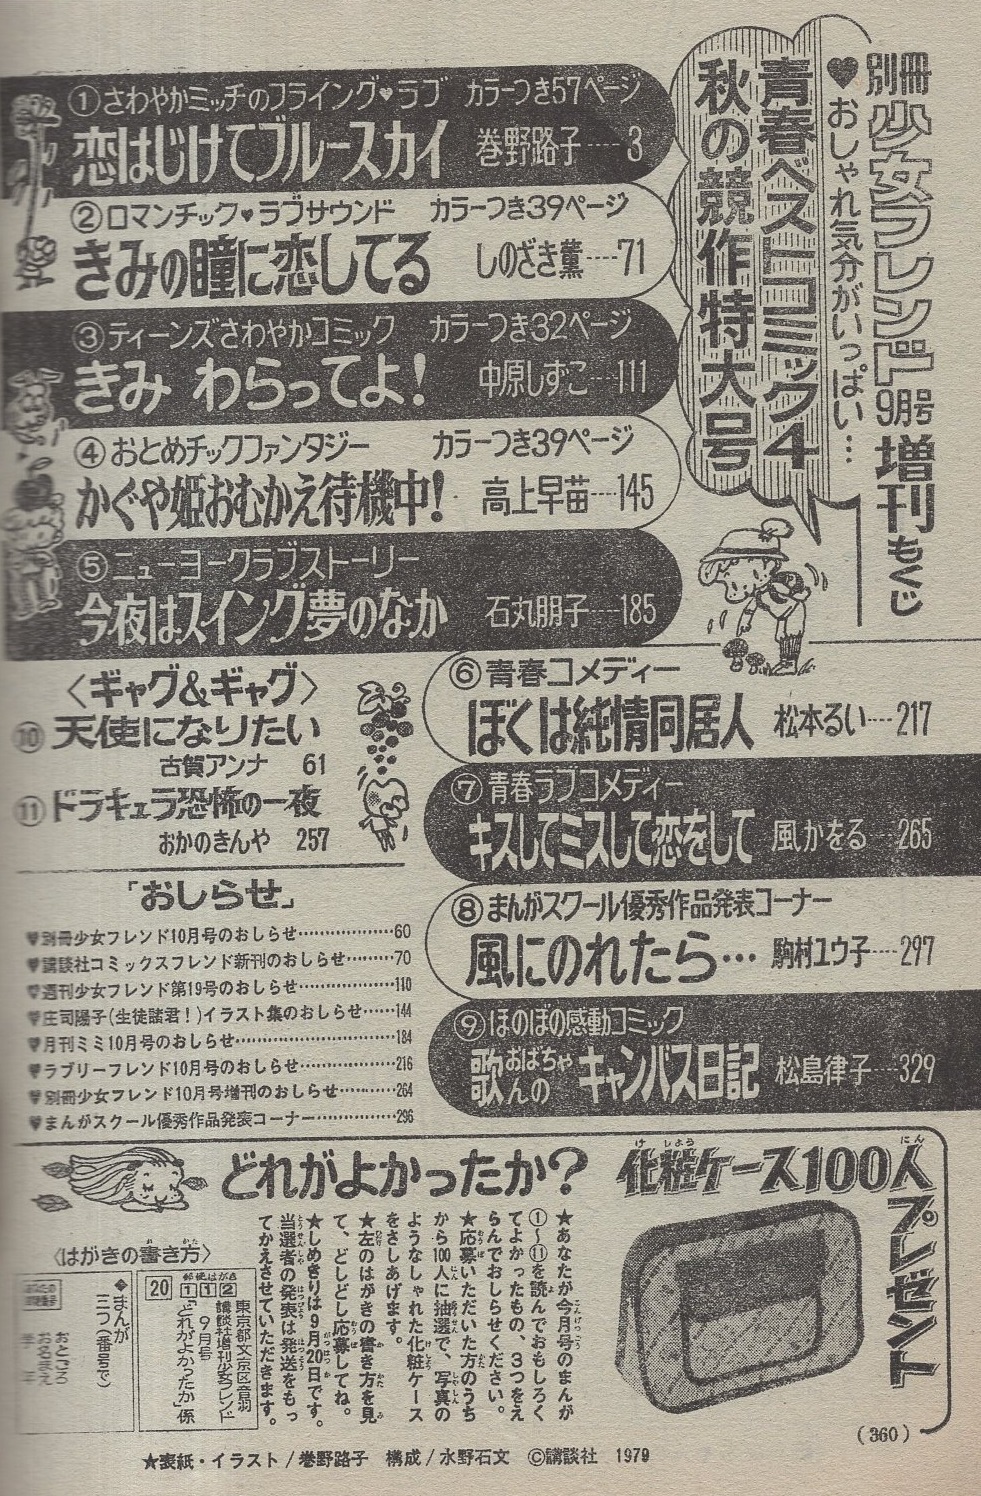 別冊少女フレンド9月号増刊もくじ
♥おしゃれ気分がいっぱい…
青春ベストコミック4
秋の競作特大号
①さわやかミッチのフライング♥ラブ カラーつき57ページ
恋はじけてブルースカイ 巻野路子----3
②ロマンチック♥ラブサウンド カラーつき39ページ
きみの瞳に恋してる しのざき薫----71
③ティーンズさわやかコミック カラーつき32ページ
きみ わらってよ! 中原しずこ---111
④おとめチックファンタジー カラーつき39ページ
かぐや姫おむかえ待機中! 高上早苗---145
⑤ニューヨークラブストーリー
今夜はスイング夢のなか 石丸朋子---185
⑥青春コメディー
ぼくは純情同居人 松本るい---217
⑦青春ラブコメディー
キスしてミスして恋をして 風かをる---265
⑧まんがスクール優秀作品発表コーナー
風にのれたら… 駒村ユウ子---297
⑨ほのぼの感動コミック
歌おばちゃんのキャンバス日記 松島律子---329
〈ギャグ&ギャグ〉
⑩天使になりたい
古賀アンナ 61
⑪ドラキュラ恐怖の一夜
おかのきんや 257
「おしらせ」
♥別冊少女フレンド10月号のおしらせ………………60
♥講談社コミックスフレンド新刊のおしらせ………70
♥週刊少女フレンド第19号のおしらせ………………110
♥庄司陽子(生徒諸君!)イラスト集のおしらせ……144
♥月刊ミミ10月号のおしらせ…………………………184
♥ラブリーフレンド10月号のおしらせ………………216
♥別冊少女フレンド10月号増刊のおしらせ…………264
♥まんがスクール優秀作品発表コーナー……………296
どれがよかったか?
化粧ケース100人プレゼント
★あなたが今月号のまんが
①〜⑪を読んでおもしろく
てよかったもの、3つをえ
らんでおしらせください。
★応募いただいた方のうち
から100人に抽選で、写真の
ようなしゃれた化粧ケース
をさしあげます。
★左のはがきの書き方を見
て、どしどし応募してね。
★しめきりは9月20日です。
当選者の発表は発送をもっ
てかえさせていただきます。
〈はがきの書き方〉
郵便はがき
20 112
東京都文京区音羽
講談社増刊少女フレンド
9月号
「どれがよかったか」係
◆まんが
三つ(番号で)
おところ
お名まえ
学年
(360)
★表紙・イラスト/巻野路子 構成/水野石文 ©講談社 1979